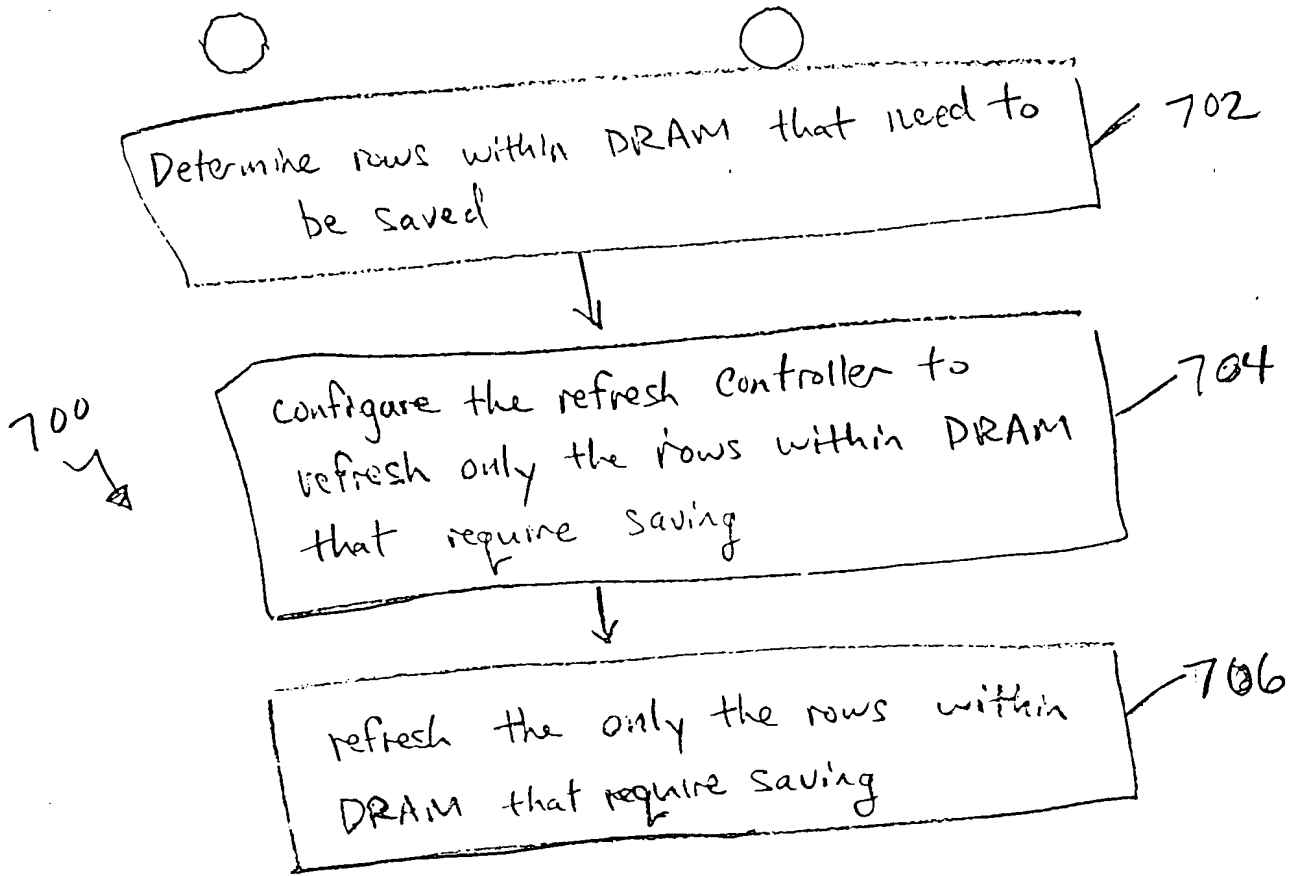 Determine rows within DRAM that need to
be saved
702
configure the refresh controller to
refresh only the rows within DRAM
that require saving
704
700
refresh the only the rows within
DRAM that require saving
706